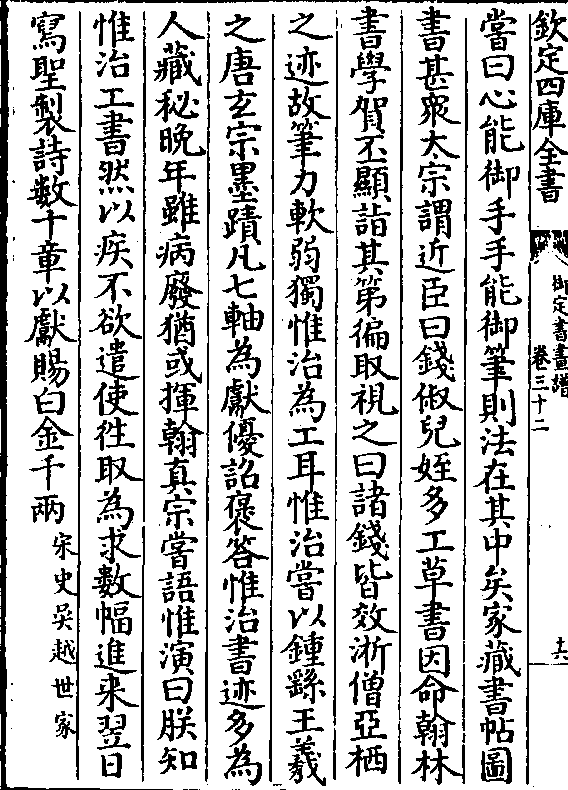 欽定四庫全書
御定書畫譜
卷三十二
十六
嘗曰心能御手手能御筆則法在其中矣家藏書帖圖
書甚衆太宗謂近臣曰錢俶兒姪多工草書因命翰林
書學賀丕顯詣其第徧取視之曰諸錢皆效浙僧亞栖
之迹故筆力軟弱獨惟治為工耳惟治嘗以鍾繇王羲
之唐玄宗墨蹟凡七軸為獻優詔褒答惟治書迹多為
人藏秘晚年雖病廢猶或揮翰真宗嘗語惟演曰朕知
惟治工書然以疾不欲遣使徃取為求數幅進来翌日
寫聖製詩數十章以獻賜白金千兩宋史吳越世家